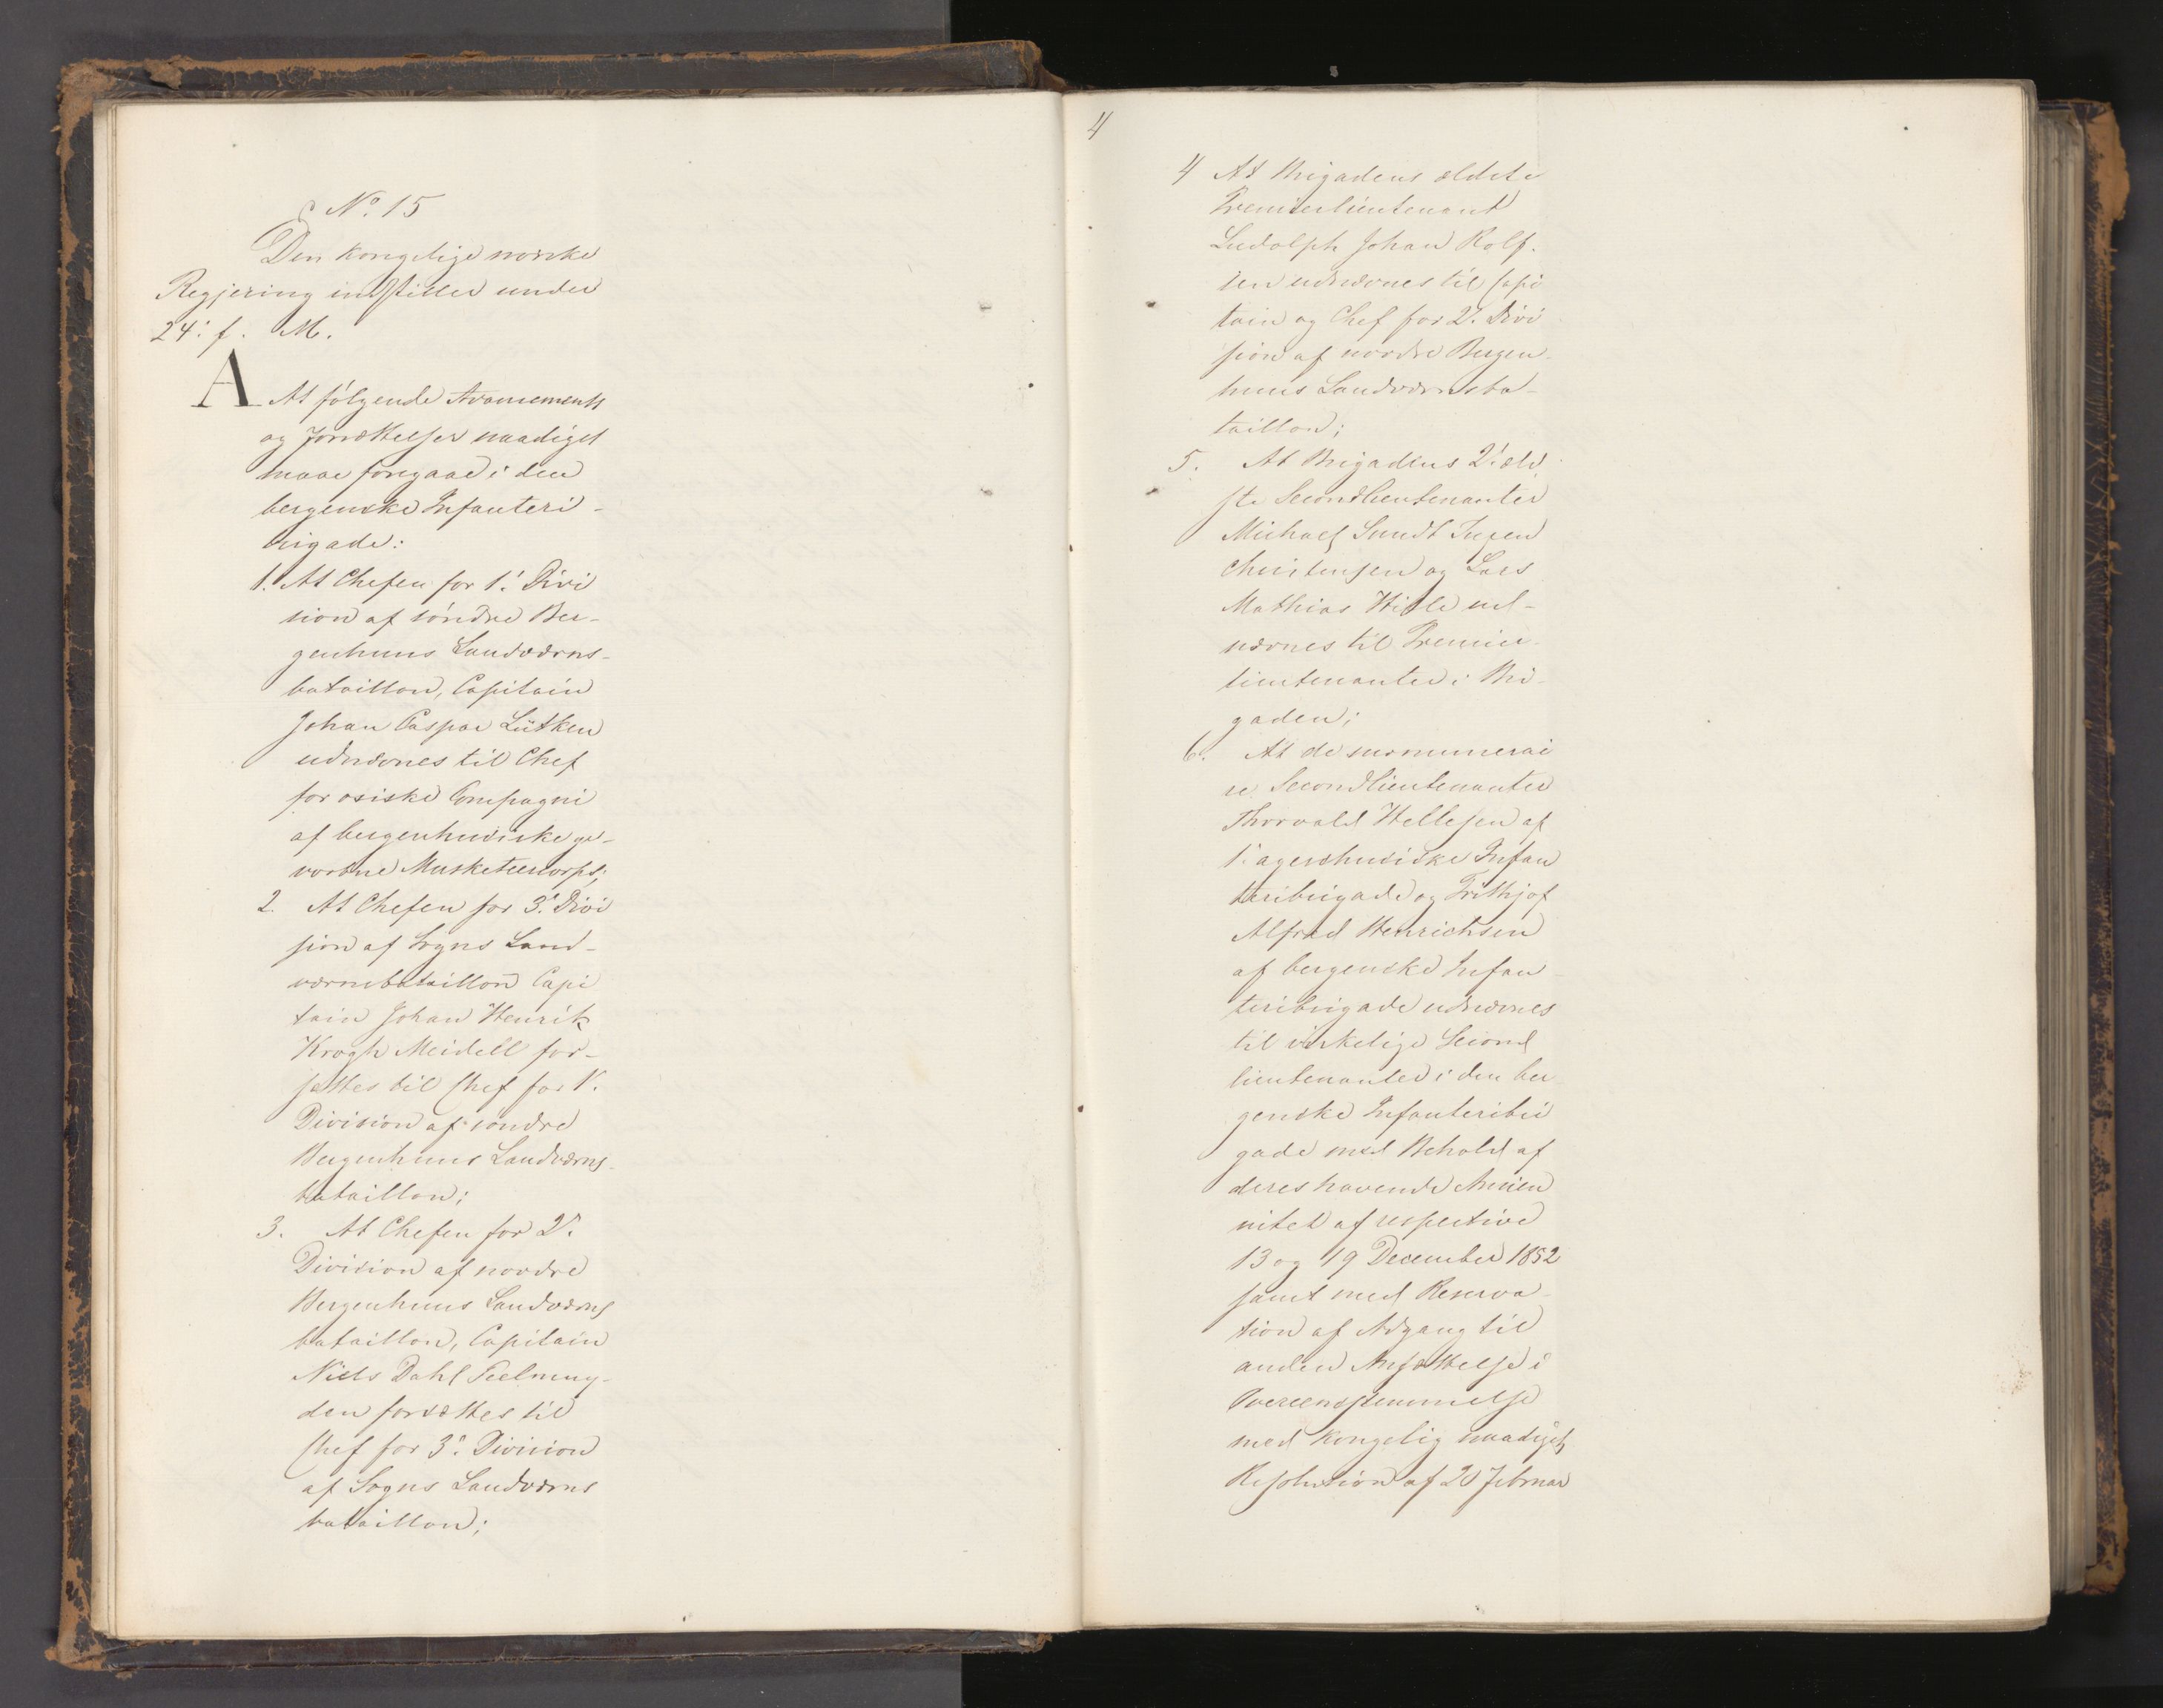 No. 15
Den kongelige norske
Regjering indstiller under
24: f. M.
A At følgende Avancements
og Forsættelser naadigst
maae foregaae i den
bergenske Infanteri-
brigade:
1. At Chefen for 1: Divi
sion af søndre Ber-
genhuus Landværns-
bataillon, Capitain
Johan Caspar Lütken
udnævnes til Chef
for osiske Compagni
af bergenhusiske ge-
vorbne Musketeercorps;
2. At Chefen for 3: Divi
sion af Sogns Land-
værnsbataillon Capi
tain Johan Henrik
Krogh Meidell for-
sættes til Chef for 1.
Division af søndre
Bergenhuus Landværns-
bataillon;
3. At Chefen for 2.
Division af nordre
Bergenhuus Landværns
bataillon, Capitain
Niels Dahl Seelmuy-
den forsættes til
Chef for 3: Division
af Sogns Landværns
bataillon;
4
4 At Brigadens ældste
Premierlieutenant
Ludolph Johan Rolf-
sen udnævnes til Capi
tain og Chef for 2. Divi
sion af nordre Bergen-
huus Landværnsba-
taillon;
5. At Brigadens 2: æld
ste Secondlieutenanter
Michael Sundt
Christensen og Lars
Mathias Hille ud-
nævnes til Premier-
lieutenanter i Bri-
gaden;
6. At de surnumerai
re Secondlieutenanter
Thorvald Hellesen af
1: agershusiske Infan
teribrigade og Frithjof
Alfred Henrichsen
af bergenske Infan-
teribrigade udnævnes
til virkelige Second
lieutenanter i den ber
genske Infanteribri
gade med Behold af
deres havende Ancien
nitet af respective
13 og 19 December 1852
samt med Reserva-
tion af Adgang til
anden Ansættelse i
Overeensstemmelse
med kongelig naadigst
Resolution af 20 Februar